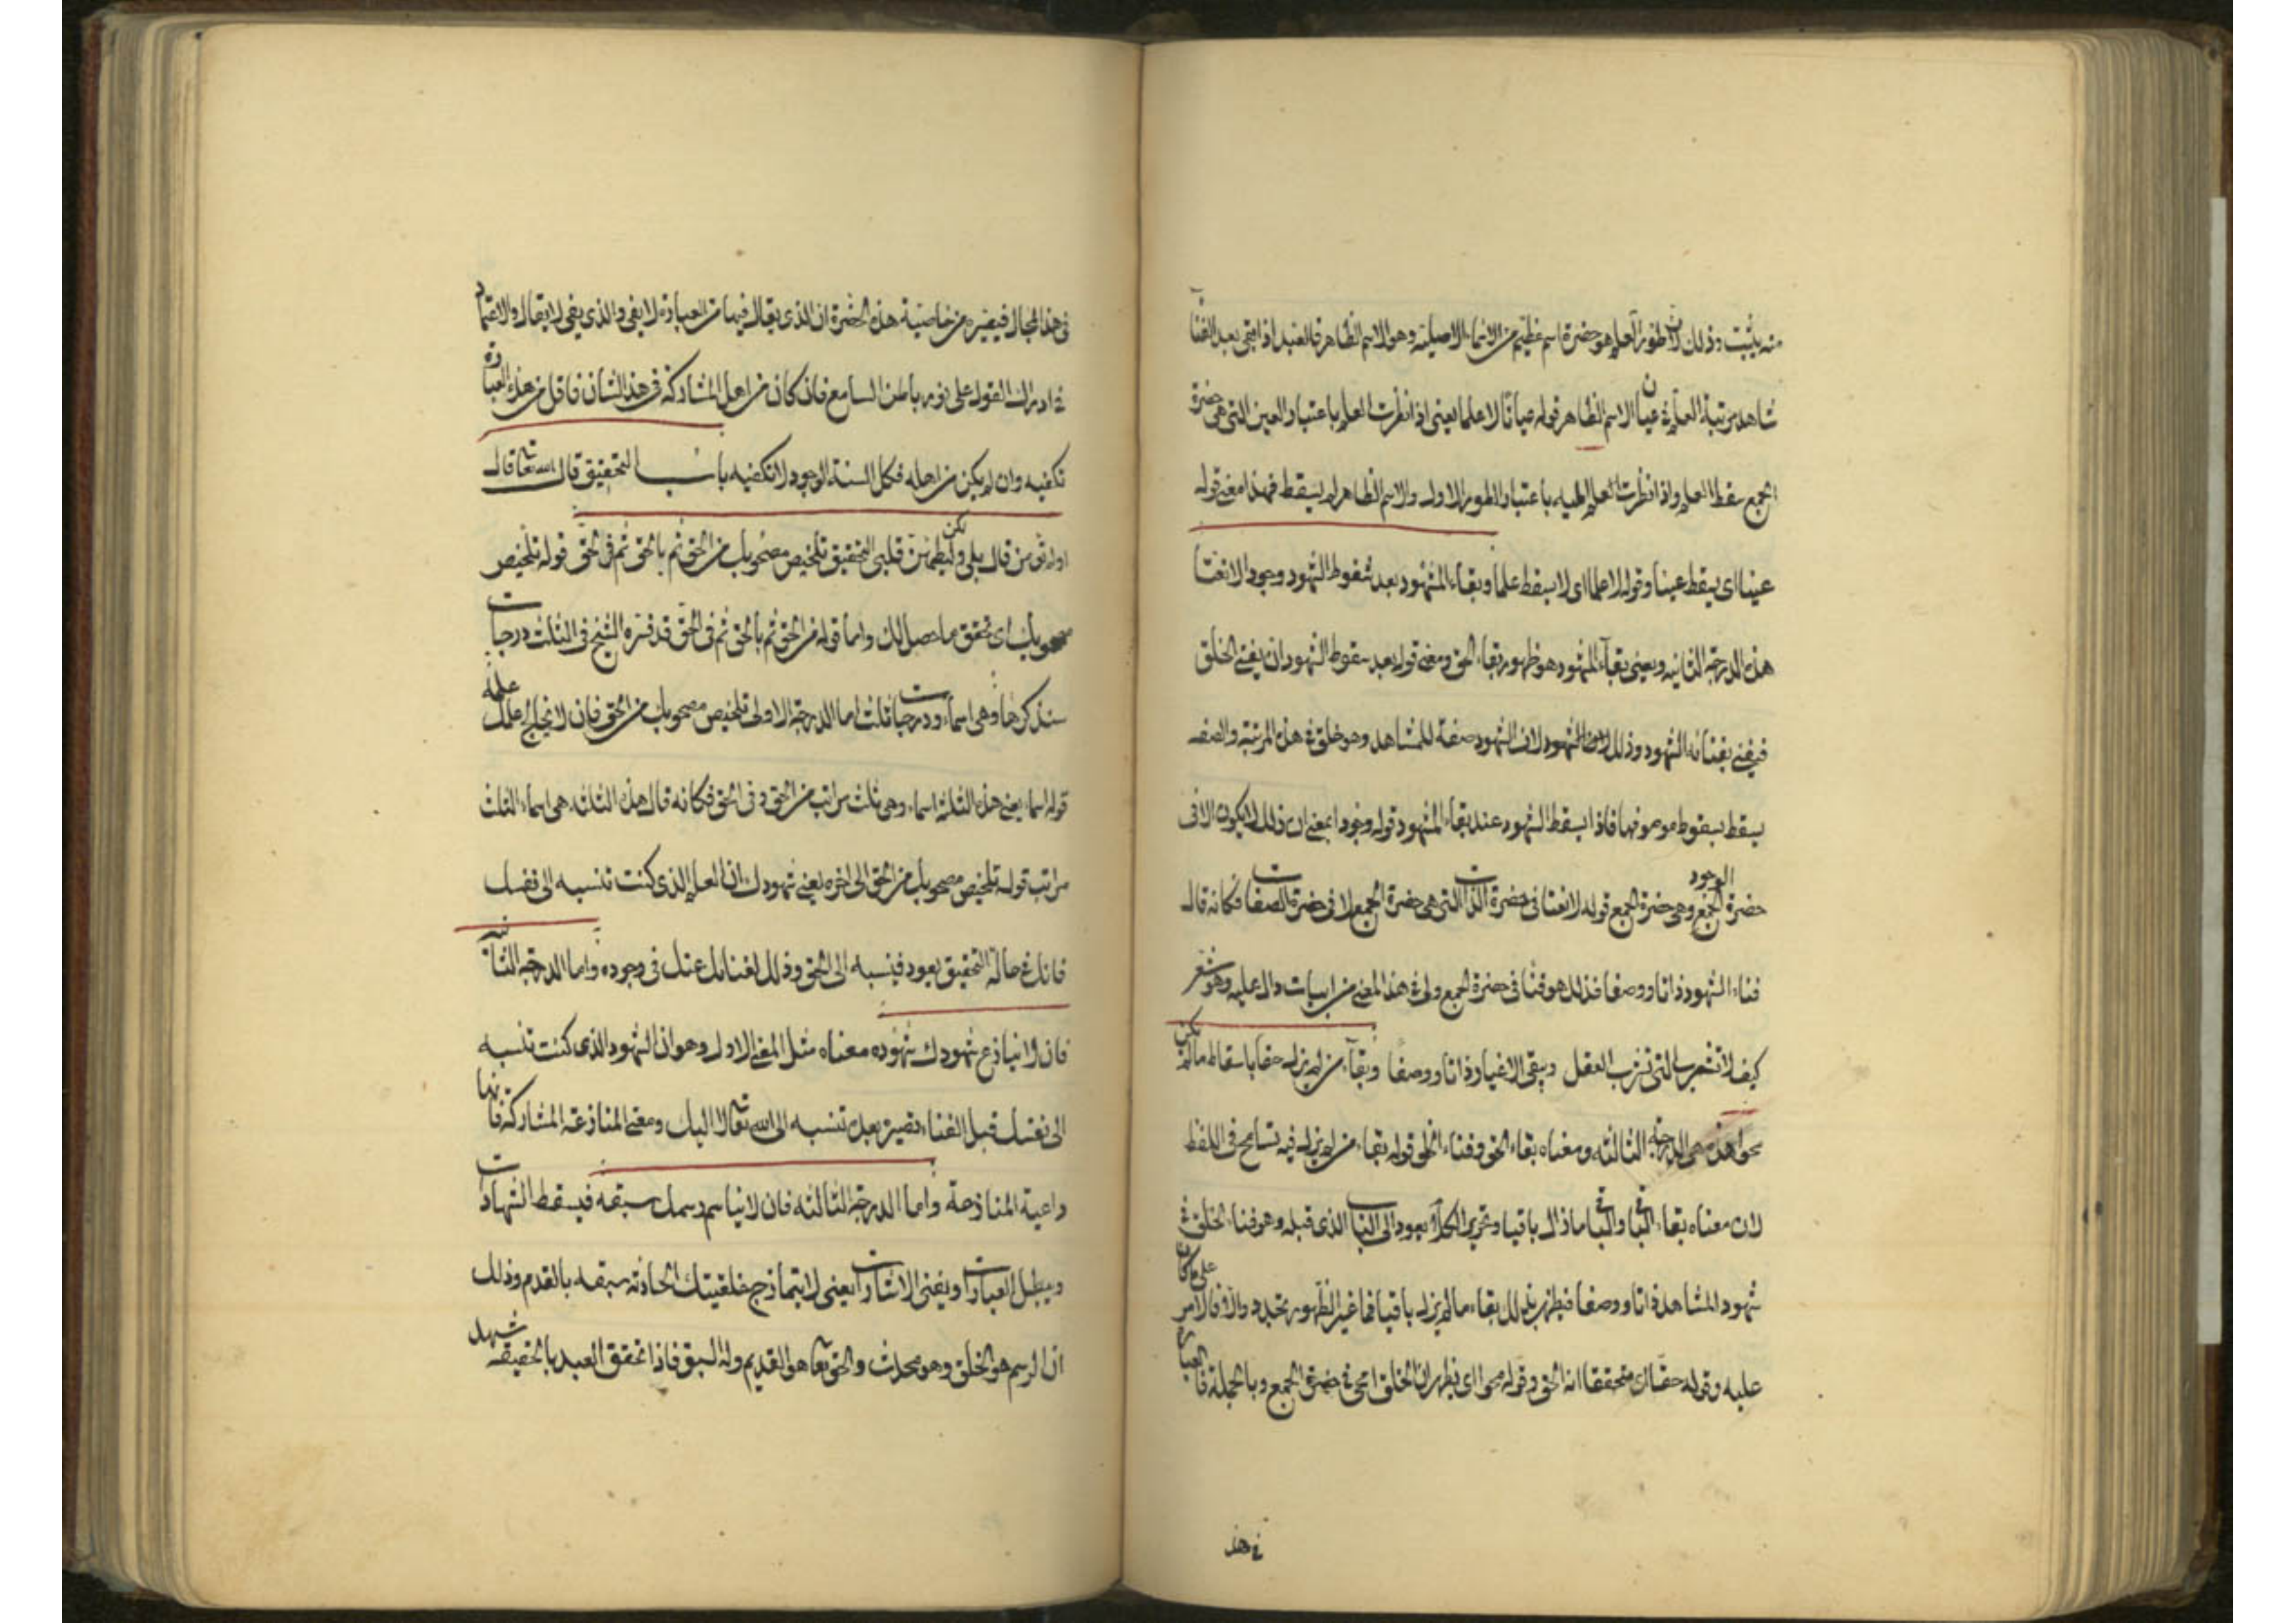 منه يثبت وذلك لان طور العلم هو حضرة اسم عظيم من الاسماء الاصلية وهو الاسم الظاهر فالعبد اذا بقى بعد الفنآ
شاهد مرتبة العلم فى عيان الاسم الظاهر قوله عيانا لا علما يعنى اذا نظرت العلم باعتبار العين التى هى حضرة
الجمع سقط العلم واذا نظرت العلم اليه باعتبار الطور الاول والاسم الظاهر لم يسقط فهذا معنى قوله
عينا اى يسقط عينا وقوله لا علما اى لا يسقط علما وبقاء المشهود بعد سقوط الشهود وجودا لا نعتا
هذه الدرجة الثانيه ويعنى بقآء المشهود هو ظهور بقاء الحق ومعنى قوله بعد سقوط الشهود ان يفنى الخلق
فيفنى بفنائه الشهود وذلك لان الشهود صفة للمشاهد وهو خلق فى هذه المرتبة والصفه
يسقط بسقوط موصوفها فاذا يسقط الشهود عند بقاء المشهود قوله وجودا بمعنى ان ذلك لا يكون الا فى
حضرة الجمع الوجود وهى حضرة الجمع قوله لا نعتا فى حضرة الذات التى هى حضرة الجمع لا فى حضرة الصفات فكانه قال
فناء الشهود ذاتا ووصفا فذلك هو فنا فى حضرة الجمع ولى فى هذا المعنى من ابيات دال عليه وهو شعر
كيف لا تشرب التى تشرب العقل ويبقى الاغيار ذاتا ووصفا وبقآء من لم يزل حقا باسقاط ما لم يكن
محوا هذه هى الدرجة الثالثه ومعناه بقاء الحق وفناء الخلق قوله بقاء من لم يزل فيه تسامح فى اللفظ
لان معناه بقاء الباقى والباقى ما زال باقيا وتحرير الكلام يعود الى الباب الذى قبله وهو فناء الخلق فى
شهود المشاهد ذاتا ووصفا فيظهر بذلك بقاء ما لم يزل باقيا فما غير الظهور تجدد والا فالامر على ما كان
عليه وقوله حقا اى متحققا انه الحق وقوله محوا اى يظهر ان الخلق امحى فى حضرة الجمع وبالجملة فالعبارة
فى هذ
فى هذا المجال قصيره من خاصية هذه الحضرة ان الذى يقال فيها من العبارة لا يفى والذى يفى لا يقال والاعتماد
فى ادراك القول على نور باطن السامع فان كان من اهل المشاركة فى هذا الشان فاقل من هذه العبارة
تكفيه وان لم يكن من اهله فكل السنة الوجود لا تكفيه باب التحقيق قال الله تعا قال
اولم تؤمن قال بلى ولكن ليطمئن قلبى التحقيق تلخيص مصحوبك من الحق ثم بالحق ثم فى الحق قوله تلخيص
مصحوبك اى تحقق ما حصل لك واما قوله من الحق ثم بالحق ثم فى الحق قد فسره الشيخ فى الثلث درجات
سنذكرها وهى اسماء ودرجات ثلث اما الدرجة الاولى تلخيص مصحوبك من الحق فان لا يخالج علمك علمه
قوله اسماء يعنى هذه الثلثة اسماء وهى ثلث مراتب من الحق وفى الحق فكانه قال هذه الثلثه هى اسماء الثلث
مراتب قوله تلخيص مصحوبك من الحق الى اخره يعنى شهودك ان العلم الذى كنت تنسبه الى نفسك
فانك فى حالة التحقيق يعود فينسبه الى الحق وذلك لفنائك عنك فى وجوده واما الدرجة الثانيه
فان لا ينازع شهودك شهوده معناه مثل المعنى الاول وهو ان الشهود الذى كنت تنسبه
الى نفسك قبل الفناء تصير بعده تنسبه الى الله تعا لا اليك ومعنى المنازعة المشاركة فانها
داعية المنازعة واما الدرجة الثالثه فان لا يناسم رسمك سبقه فيسقط الشهادات
ويبطل العبارات ويفنى الاشارات يعنى لا يتمازج خلقيتك الحادثه سبقه بالقدم وذلك
ان الرسم هو الخلق وهو محدث والحق تعا هو القديم وله السبق فاذا تحقق العبد بالحقيقه شهد